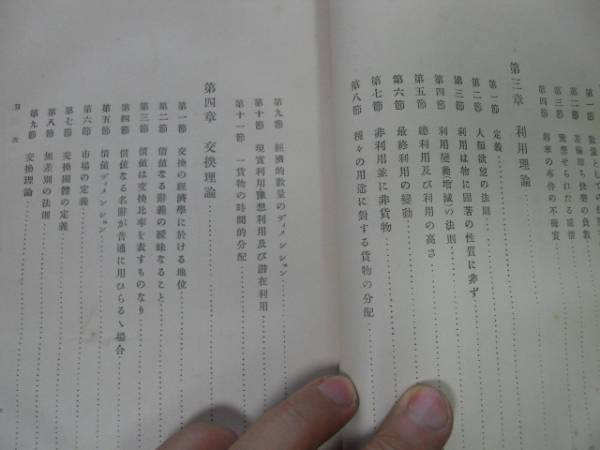 第一節 數量としての快樂
第二節 苦痛即ち快樂の負數
第三節 豫想せられたる感情
第四節 將來の事件の不確實
第三章 利用理論
第一節 定義
第二節 人類欲望の法則
第三節 利用は物に固著の性質に非ず
第四節 利用變動(增減)の法則
第五節 總利用及び利用の高さ
第六節 最終利用の變動
第七節 非利用並に非貨物
第八節 種々の用途に對する貨物の分配
第九節 經濟的數量のディメンション
第十節 現實利用豫想利用及び潜在利用
第十一節 一貨物の時間的分配
第四章 交換理論
第一節 交換の經濟學に於ける地位
第二節 價値なる辭義の曖昧なること
第三節 價値は交換比率を表すものなり
第四節 價値なる名辭が普通に用ひらるゝ場合
第五節 價値ディメンション
第六節 市場の定義
第七節 交換團體の定義
第八節 無差別の法則
第九節 交換理論
目 次